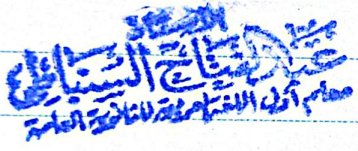 الأستاذ
عبد الفتاح السنباطي
معلم أول اللغة العربية للثانوية العامة